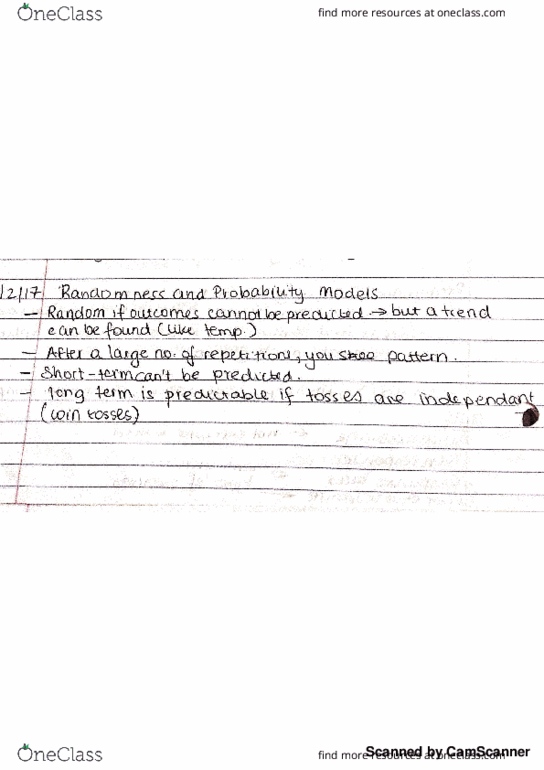 OneClass find more resources at oneclass.com
12/17 Randomness and Probability Models
- Random if outcomes cannot be predicted → but a trend
can be found (like temp.)
- After a large no. of repetitions, you see pattern.
- Short-term can't be predicted.
- long term is predictable if tosses are independant
(coin tosses)
OneClass find more resources at oneclass.com
Scanned by CamScanner